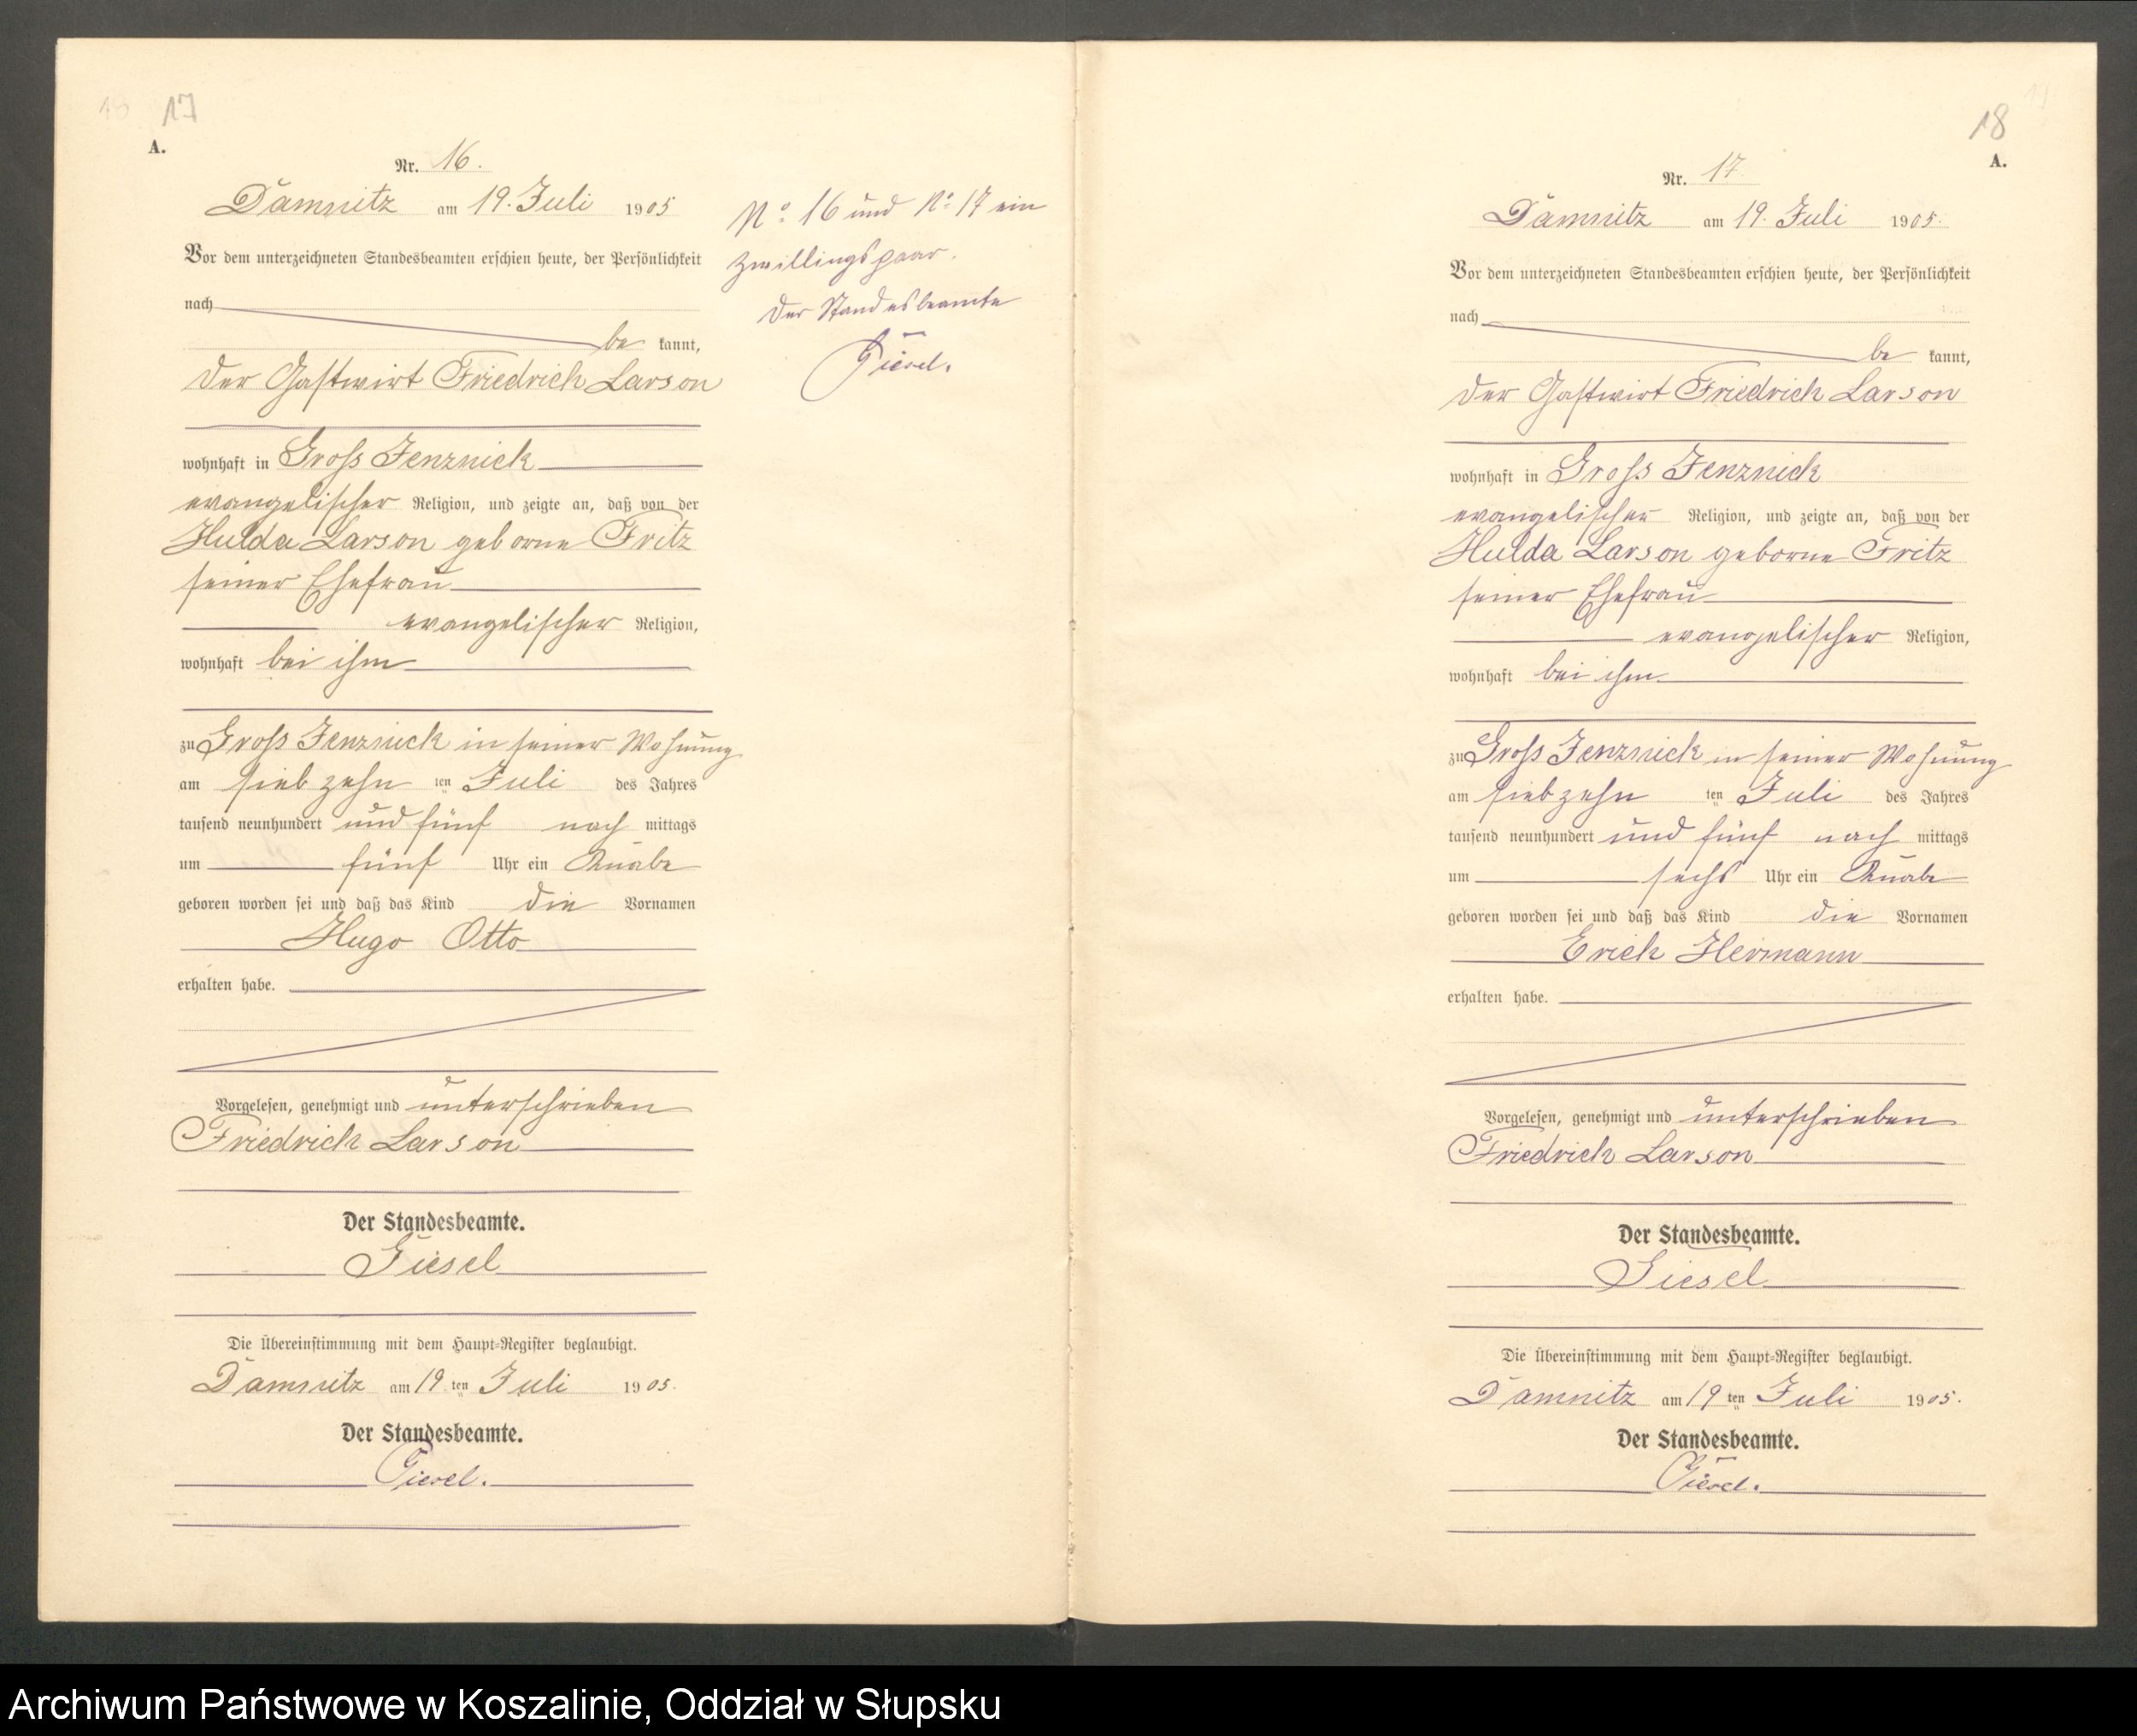 17
A.
Nr. 16.
Damnitz am 19. Juli 1905
Vor dem unterzeichneten Standesbeamten erschien heute, der Persönlichkeit
nach
be kannt,
der Gastwirt Friedrich Larson
wohnhaft in Gross Jenznick
evangelischer Religion, und zeigte an, daß von der
Hulda Larson geborne Fritz
seiner Ehefrau
evangelischer Religion,
wohnhaft bei ihm
zu Gross Jenznick in seiner Wohnung
am siebzehn ten Juli des Jahres
tausend neunhundert und fünf nach mittags
um fünf Uhr ein Knabe
geboren worden sei und daß das Kind die Vornamen
Hugo Otto
erhalten habe.
Vorgelesen, genehmigt und unterschrieben
Friedrich Larson
Der Standesbeamte.
Giesel
Die Übereinstimmung mit dem Haupt-Register beglaubigt.
Damnitz am 19 ten Juli 1905.
Der Standesbeamte.
Giesel.
No 16 und No 17 ein
Zwillingspaar.
Der Standesbeamte
Giesel.
18
A.
Nr. 17
Damnitz am 19. Juli 1905.
Vor dem unterzeichneten Standesbeamten erschien heute, der Persönlichkeit
nach
be kannt,
der Gastwirt Friedrich Larson
wohnhaft in Gross Jenznick
evangelischer Religion, und zeigte an, daß von der
Hulda Larson geborne Fritz
seiner Ehefrau
evangelischer Religion,
wohnhaft bei ihm
zu Gross Jenznick in seiner Wohnung
am siebzehn ten Juli des Jahres
tausend neunhundert und fünf nach mittags
um sechs Uhr ein Knabe
geboren worden sei und daß das Kind die Vornamen
Erich Hermann
erhalten habe.
Vorgelesen, genehmigt und unterschrieben
Friedrich Larson
Der Standesbeamte.
Giesel
Die Übereinstimmung mit dem Haupt-Register beglaubigt.
Damnitz am 19 ten Juli 1905.
Der Standesbeamte.
Giesel.
Archiwum Państwowe w Koszalinie, Oddział w Słupsku